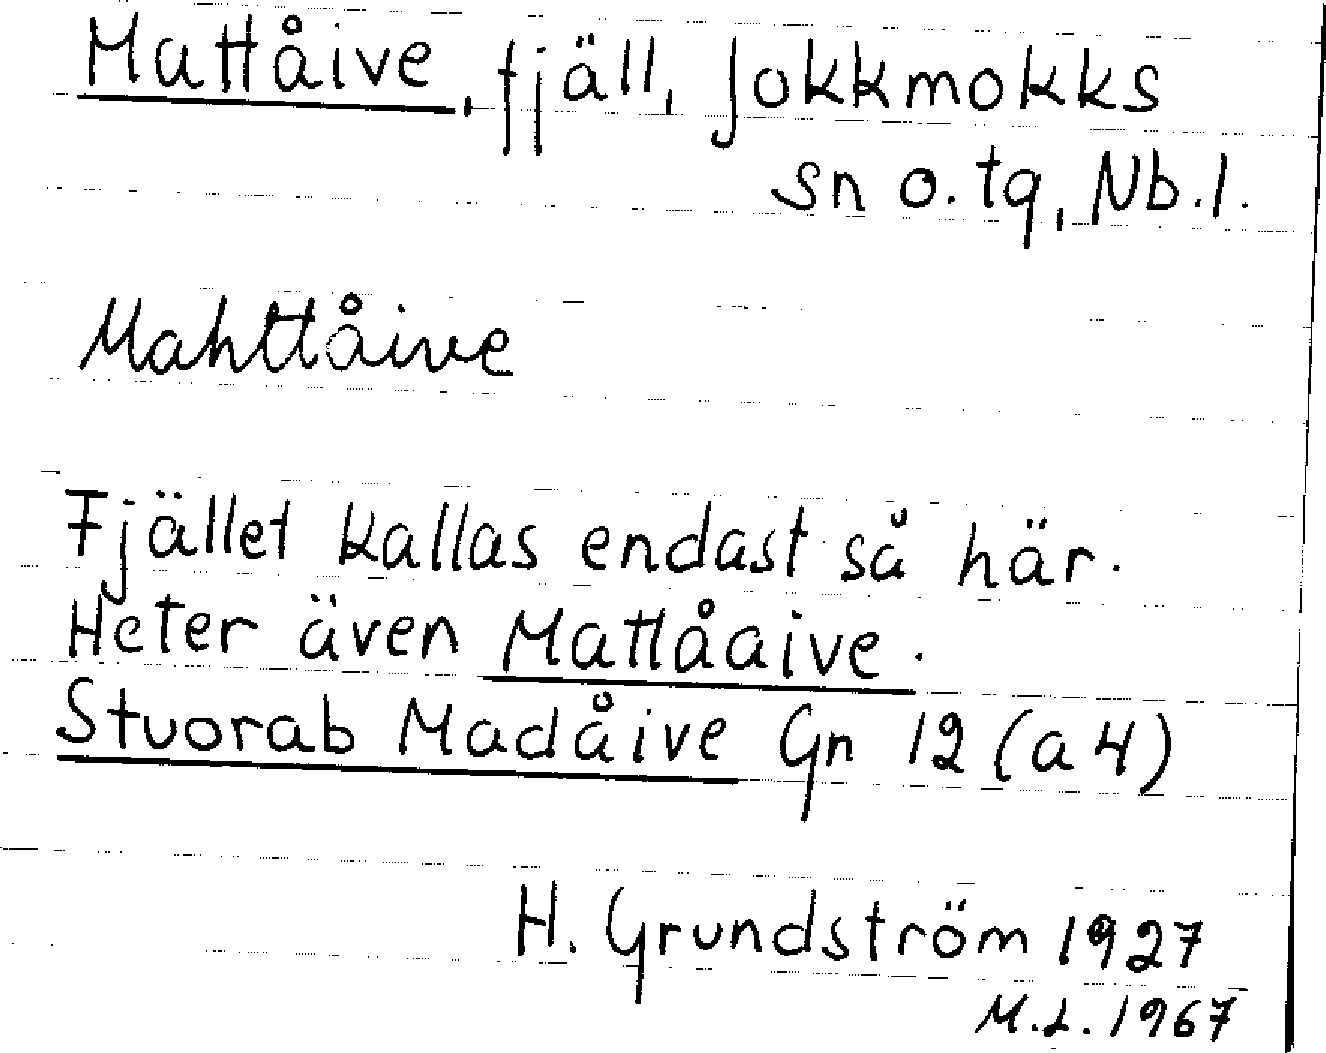 Mattåive, fjäll, Jokkmokks
sn o. tg, Nb.l.
Mahttåive
Fjället kallas endast så här.
Heter även Mattåaive.
Stuorab Madåive Gn 12 (a4)
H. Grundström 1927
M.L. 1967